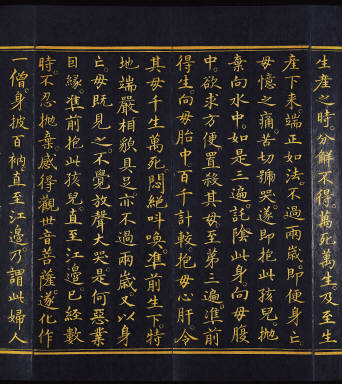 生產之時分解不得萬死萬生及至生
產下来端正如法不過兩歲即便身亡
母憶之痛苦切號哭遂即抱此孩兒抛
棄向水中如是三遍託陰此身向母腹
中欲求方便置殺其母至第三遍準前
得生向母胎中百千計較抱母心肝令
其母千生萬死悶絕叫喚準前生下特
地端嚴相貌具足亦不過兩歲又以身
亡母既見之不覺放聲大哭是何惡業
因緣準前抱此孩兒直至江邊已經數
時不忍抛棄感得觀世音菩薩遂化作
一僧身披百衲直至江邊乃謂此婦人